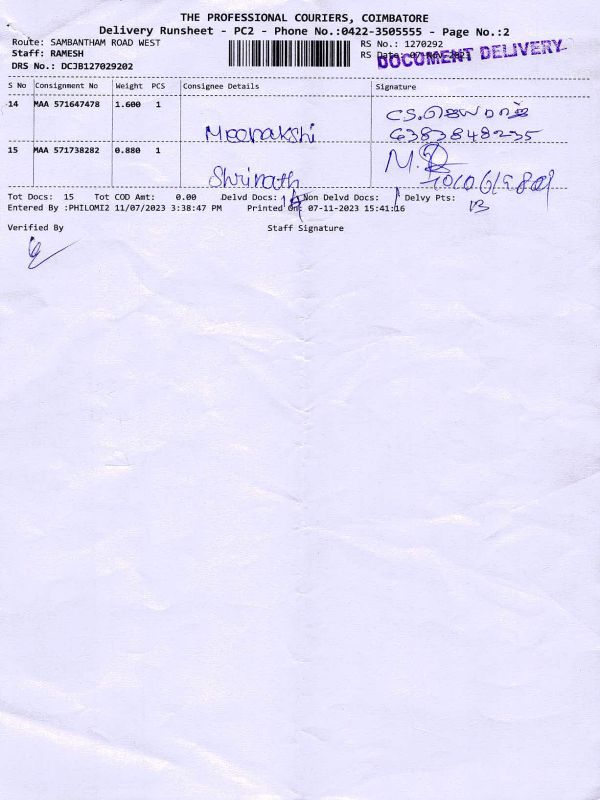 THE PROFESSIONAL COURIERS, COIMBATORE
Delivery Runsheet - PC2 - Phone No.:0422-3505555 - Page No.:2
Route: SAMBANTHAM ROAD WEST
RS No.: 1270292
Staff: RAMESH
RS Date: 07-Nov-2023
DOCUMENT DELIVERY
DRS No.: DCJB127029202
S No Consignment No Weight PCS Consignee Details Signature
14 MAA 571647478 1.600 1
Meenakshi
6383848235
15 MAA 571738282 0.880 1
Shrinath
Tot Docs: 15 Tot COD Amt: 0.00 Delvd Docs: 14 Non Delvd Docs: 1 Delvy Pts: 13
Entered By :PHILOMI2 11/07/2023 3:38:47 PM Printed On: 07-11-2023 15:41:16
Verified By Staff Signature